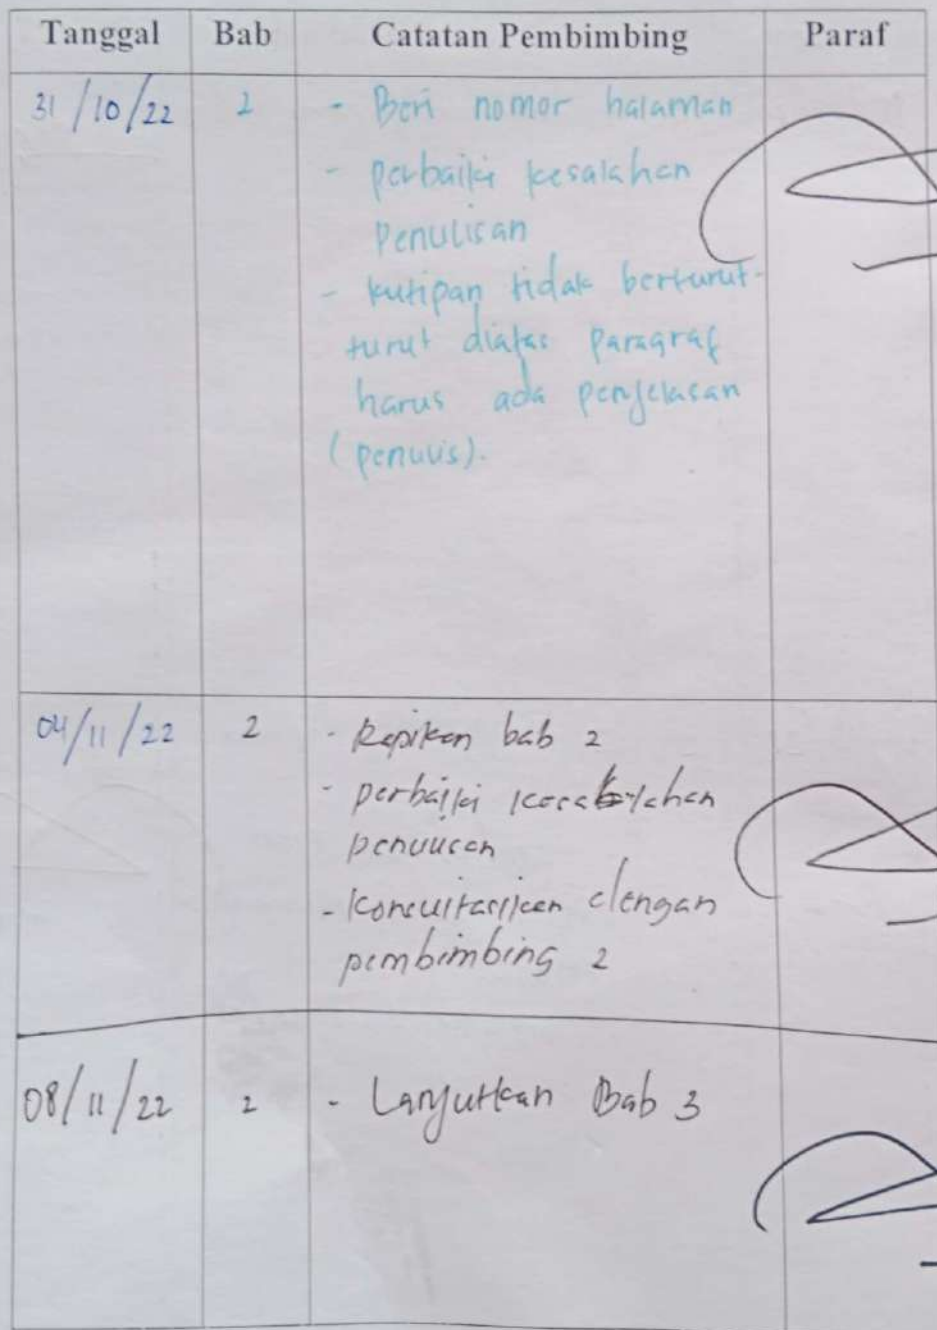 Tanggal Bab Catatan Pembimbing Paraf
31/10/22 2 - Beri nomor halaman
- perbaiki kesalahan
penulisan
- kutipan tidak berturut-
turut diatas paragraf
harus ada penjelasan
(penulis).
04/11/22 2 - Rapikan bab 2
- perbaiki kesalahan
penulisan
- Konsultasikan dengan
pembimbing 2
08/11/22 2 - Lanjutkan Bab 3